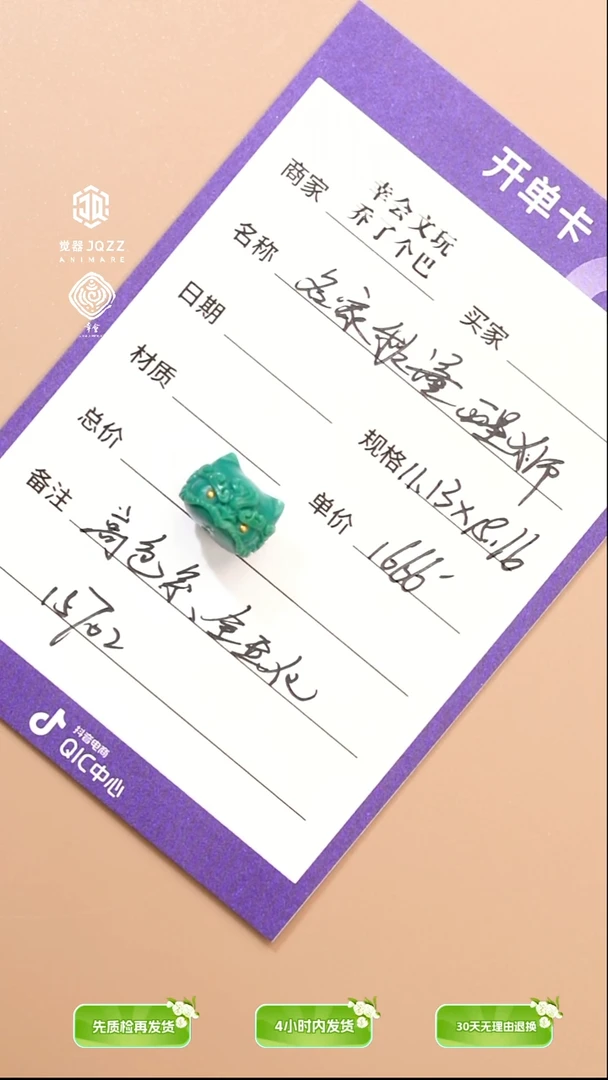 开单卡
商家 幸会文玩
乔了个巴
买家
名称 名家散漫 醒狮
日期
材质
规格 11.13×18.16
总价
单价 1666
备注 高色系、全瓷化
15702
抖音电商
QIC中心
觉器 JQZZ
ANIMARE
先质检再发货
4小时内发货
30天无理由退换